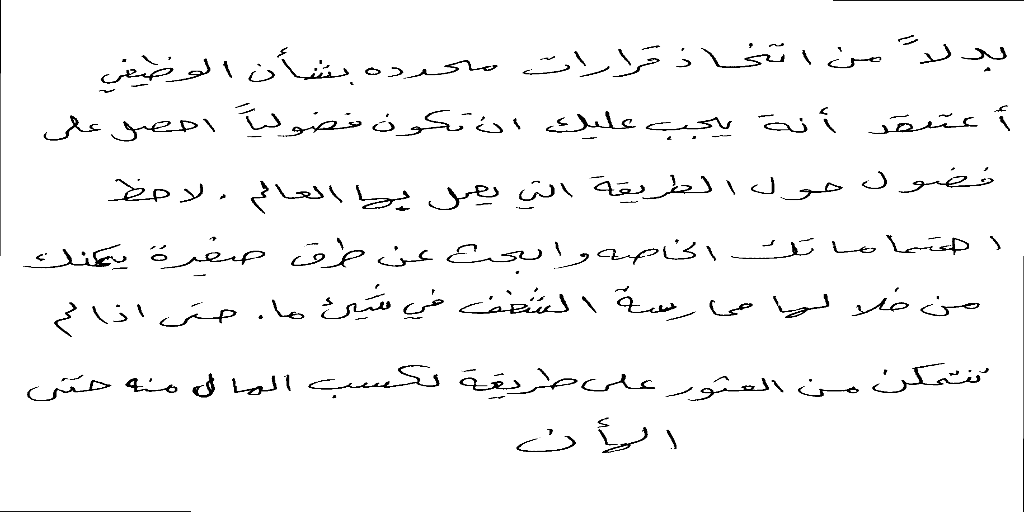 بدلاً من اتخاذ قرارات محدده بشأن الوظيفي
أعتقد أنة يجب عليك ان تكون فضولياً احصل على
فضول حول الطريقة التي يعمل بها العالم . لاحظ
اهتماماتك الخاصه وابحث عن طرق صغيرة يمكنك
من خلالها ممارسة الشغف في شيئ ما. حتى اذا لم
تتمكن من العثور على طريقة لكسب المال منه حتى